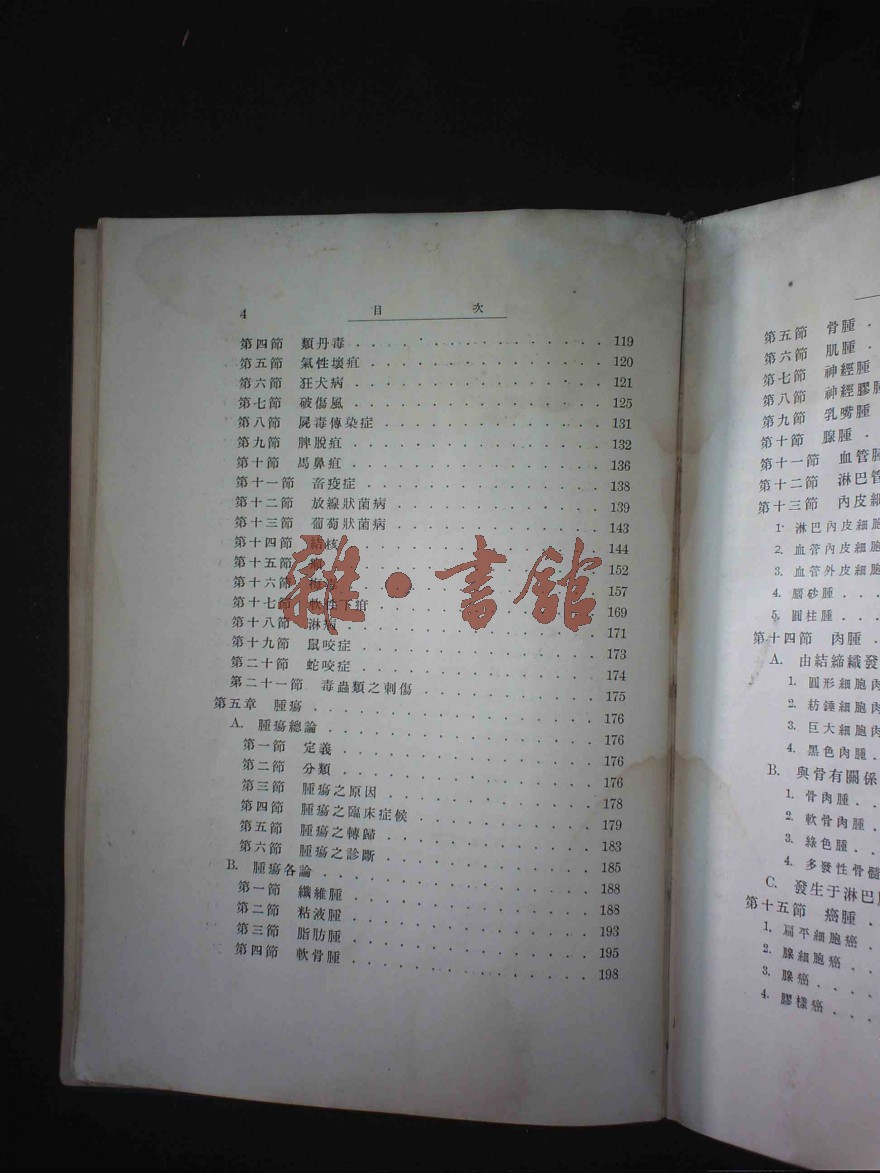 4 目 次
第四節 類丹毒 119
第五節 氣性壞疽 120
第六節 狂犬病 121
第七節 破傷風 125
第八節 屍毒傳染症 131
第九節 脾脫疽 132
第十節 馬鼻疽 136
第十一節 畜疫症 138
第十二節 放線狀菌病 139
第十三節 葡萄狀菌病 143
第十四節 結核 144
第十五節 152
第十六節 梅毒 157
第十七節 軟性下疳 169
第十八節 淋病 171
第十九節 鼠咬症 173
第二十節 蛇咬症 174
第二十一節 毒蟲類之刺傷 175
第五章 腫瘍 176
A. 腫瘍總論 176
第一節 定義 176
第二節 分類 176
第三節 腫瘍之原因 178
第四節 腫瘍之臨床症候 179
第五節 腫瘍之轉歸 183
第六節 腫瘍之診斷 185
B. 腫瘍各論 188
第一節 纖維腫 188
第二節 粘液腫 193
第三節 脂肪腫 195
第四節 軟骨腫 198
雜·書館
第五節 骨腫
第六節 肌腫
第七節 神經腫
第八節 神經膠腫
第九節 乳嘴腫
第十節 腺腫
第十一節 血管腫
第十二節 淋巴管
第十三節 內皮細
1. 淋巴內皮細胞
2. 血管內皮細胞
3. 血管外皮細胞
4. 腦砂腫
5. 圓柱腫
第十四節 肉腫
A. 由結締織發
1. 圓形細胞肉
2. 紡錘細胞肉
3. 巨大細胞肉
4. 黑色肉腫
B. 與骨有關係
1. 骨肉腫
2. 軟骨肉腫
3. 綠色腫
4. 多發性骨髓
C. 發生于淋巴
第十五節 癌腫
1. 扁平細胞癌
2. 腺細胞癌
3. 腺癌
4. 膠樣癌